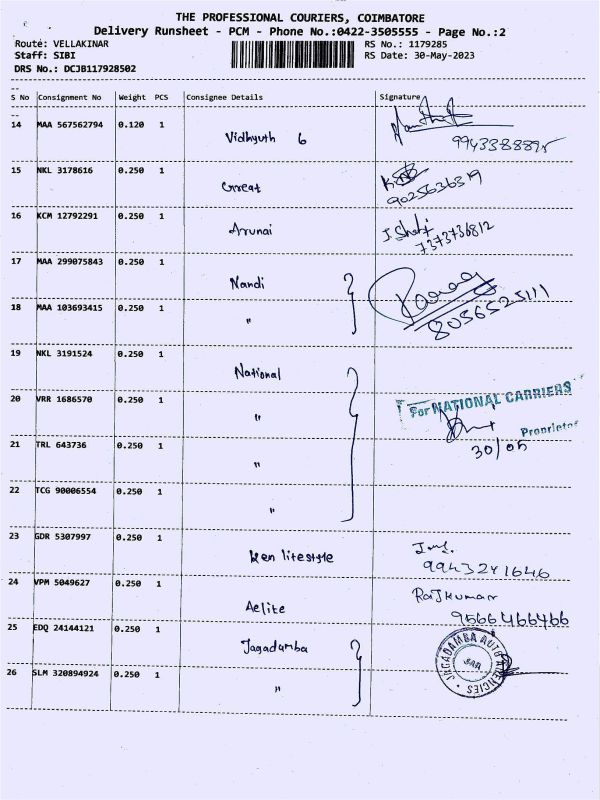 THE PROFESSIONAL COURIERS, COIMBATORE
Delivery Runsheet - PCM - Phone No.:0422-3505555 - Page No.:2
Route: VELLAKINAR RS No.: 1179285
Staff: SIBI RS Date: 30-May-2023
DRS No.: DCJB117928502
--
S No Consignment No Weight PCS Consignee Details Signature
--
14 MAA 567562794 0.120 1
Vidhyuth 6
15 NKL 3178616 0.250 1
Great 9025636319
16 KCM 12792291 0.250 1
Arunai 7373736812
17 MAA 299075843 0.250 1
Nandi
18 MAA 103693415 0.250 1
" 8056525111
19 NKL 3191524 0.250 1
National
20 VRR 1686570 0.250 1
For NATIONAL CARRIERS
"
Proprietor
21 TRL 643736 0.250 1
30/05
"
22 TCG 90006554 0.250 1
"
23 GDR 5307997 0.250 1
Ken litestyle
9943241646
24 VPM 5049627 0.250 1
Rajkumar
Aelite 9566466466
25 EDQ 24144121 0.250 1
Jagadamba
JAGADAMBA AUTO AGENCIES
26 SLM 320894924 0.250 1
"